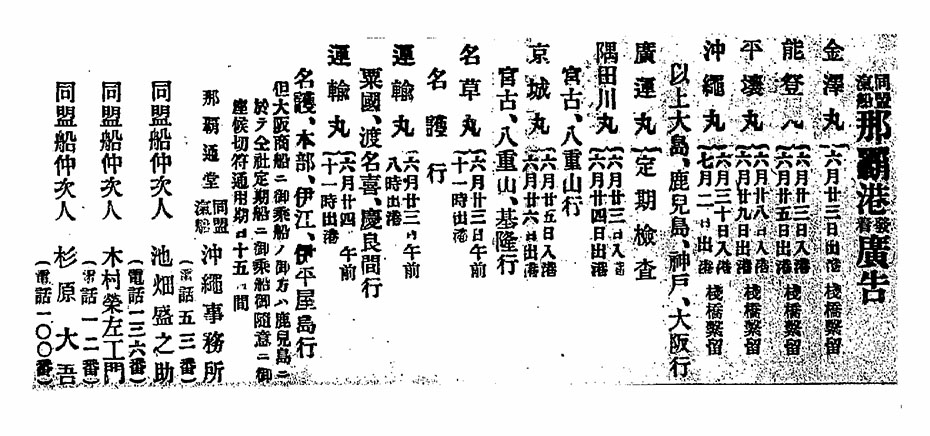 同盟汽船那覇港發着廣告
金澤丸 六月廿三日出港 棧橋繫留
能登丸 六月廿三日入港 六月廿五日出港 棧橋繫留
平壤丸 六月廿八日入港 六月廿九日出港 棧橋繫留
沖繩丸 六月三十日入港 七月二日出港 棧橋繫留
以上大島、鹿兒島、神戸、大阪行
廣運丸 定期檢査
隅田川丸 六月廿三日入港 六月廿四日出港
宮古、八重山行
京城丸 六月廿五日入港 六月廿六日出港
宮古、八重山、基隆行
名草丸 六月廿三日午前十一時出港
名護行
運輸丸 六月廿三日午前八時出港
粟國、渡名喜、慶良間行
運輸丸 六月廿四日午前十一時出港
名護、本部、伊江、伊平屋島行
但大阪商船ニ御乘船ノ御方ハ鹿兒島ニ
於テ仝社定期船ニ御乘船御隨意ニ御
座候切符通用期日十五日間
那覇通堂 同盟汽船 沖繩事務所
(電話五三番)
同盟船仲次人 池畑盛之助
(電話一三六番)
同盟船仲次人 木村榮左工門
(電話一二番)
同盟船仲次人 杉原大吾
(電話一〇〇番)